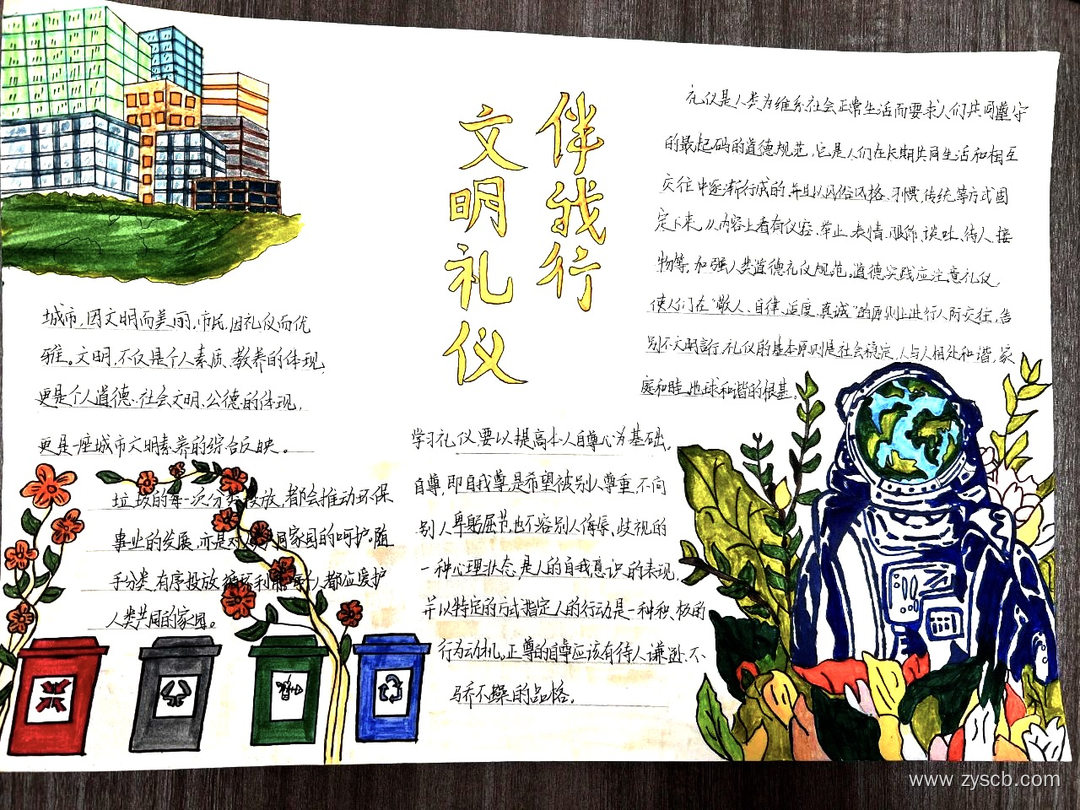 文明礼仪
伴我行
城市,因文明而美丽,市民,因礼仪而优
雅。文明,不仅是个人素质、教养的体现
更是个人道德、社会文明、公德的体现,
更是一座城市文明素养的综合反映。
垃圾的每一次分类投放,都会推动环保
事业的发展,亦是对共同家园的呵护,随
手分类,有序投放,循环利用,人都应爱护
人类共同的家园。
学习礼仪要以提高本人自尊心为基础,
自尊,即自我尊,是希望被别人尊重,不向
别人卑躬屈节,也不容别人侮辱、歧视的
一种心理状态,是人的自我意识的表现,
并以特定的方式指定人的行动是一种积极的
行为动机。正尊的自尊应该有待人谦逊、不
骄不躁的品格。
礼仪是人类为维系社会正常生活而要求人们共同遵守
的最起码的道德规范,它是人们在长期共同生活和相互
交往中逐渐行成的,并且以风俗风格、习惯,传统等方式固
定下来,从内容上看有仪容、举止、表情、服饰、谈吐、待人、接
物等,加强人类道德礼仪规范,道德实践应注意礼仪,
使人们在“敬人、自律、适度、真诚”的原则上进行人际交往,告
别不文明言行,礼仪的基本原则是社会稳定,人与人相处和谐,家
庭和睦,地球和谐的根基。
www.zyscb.com